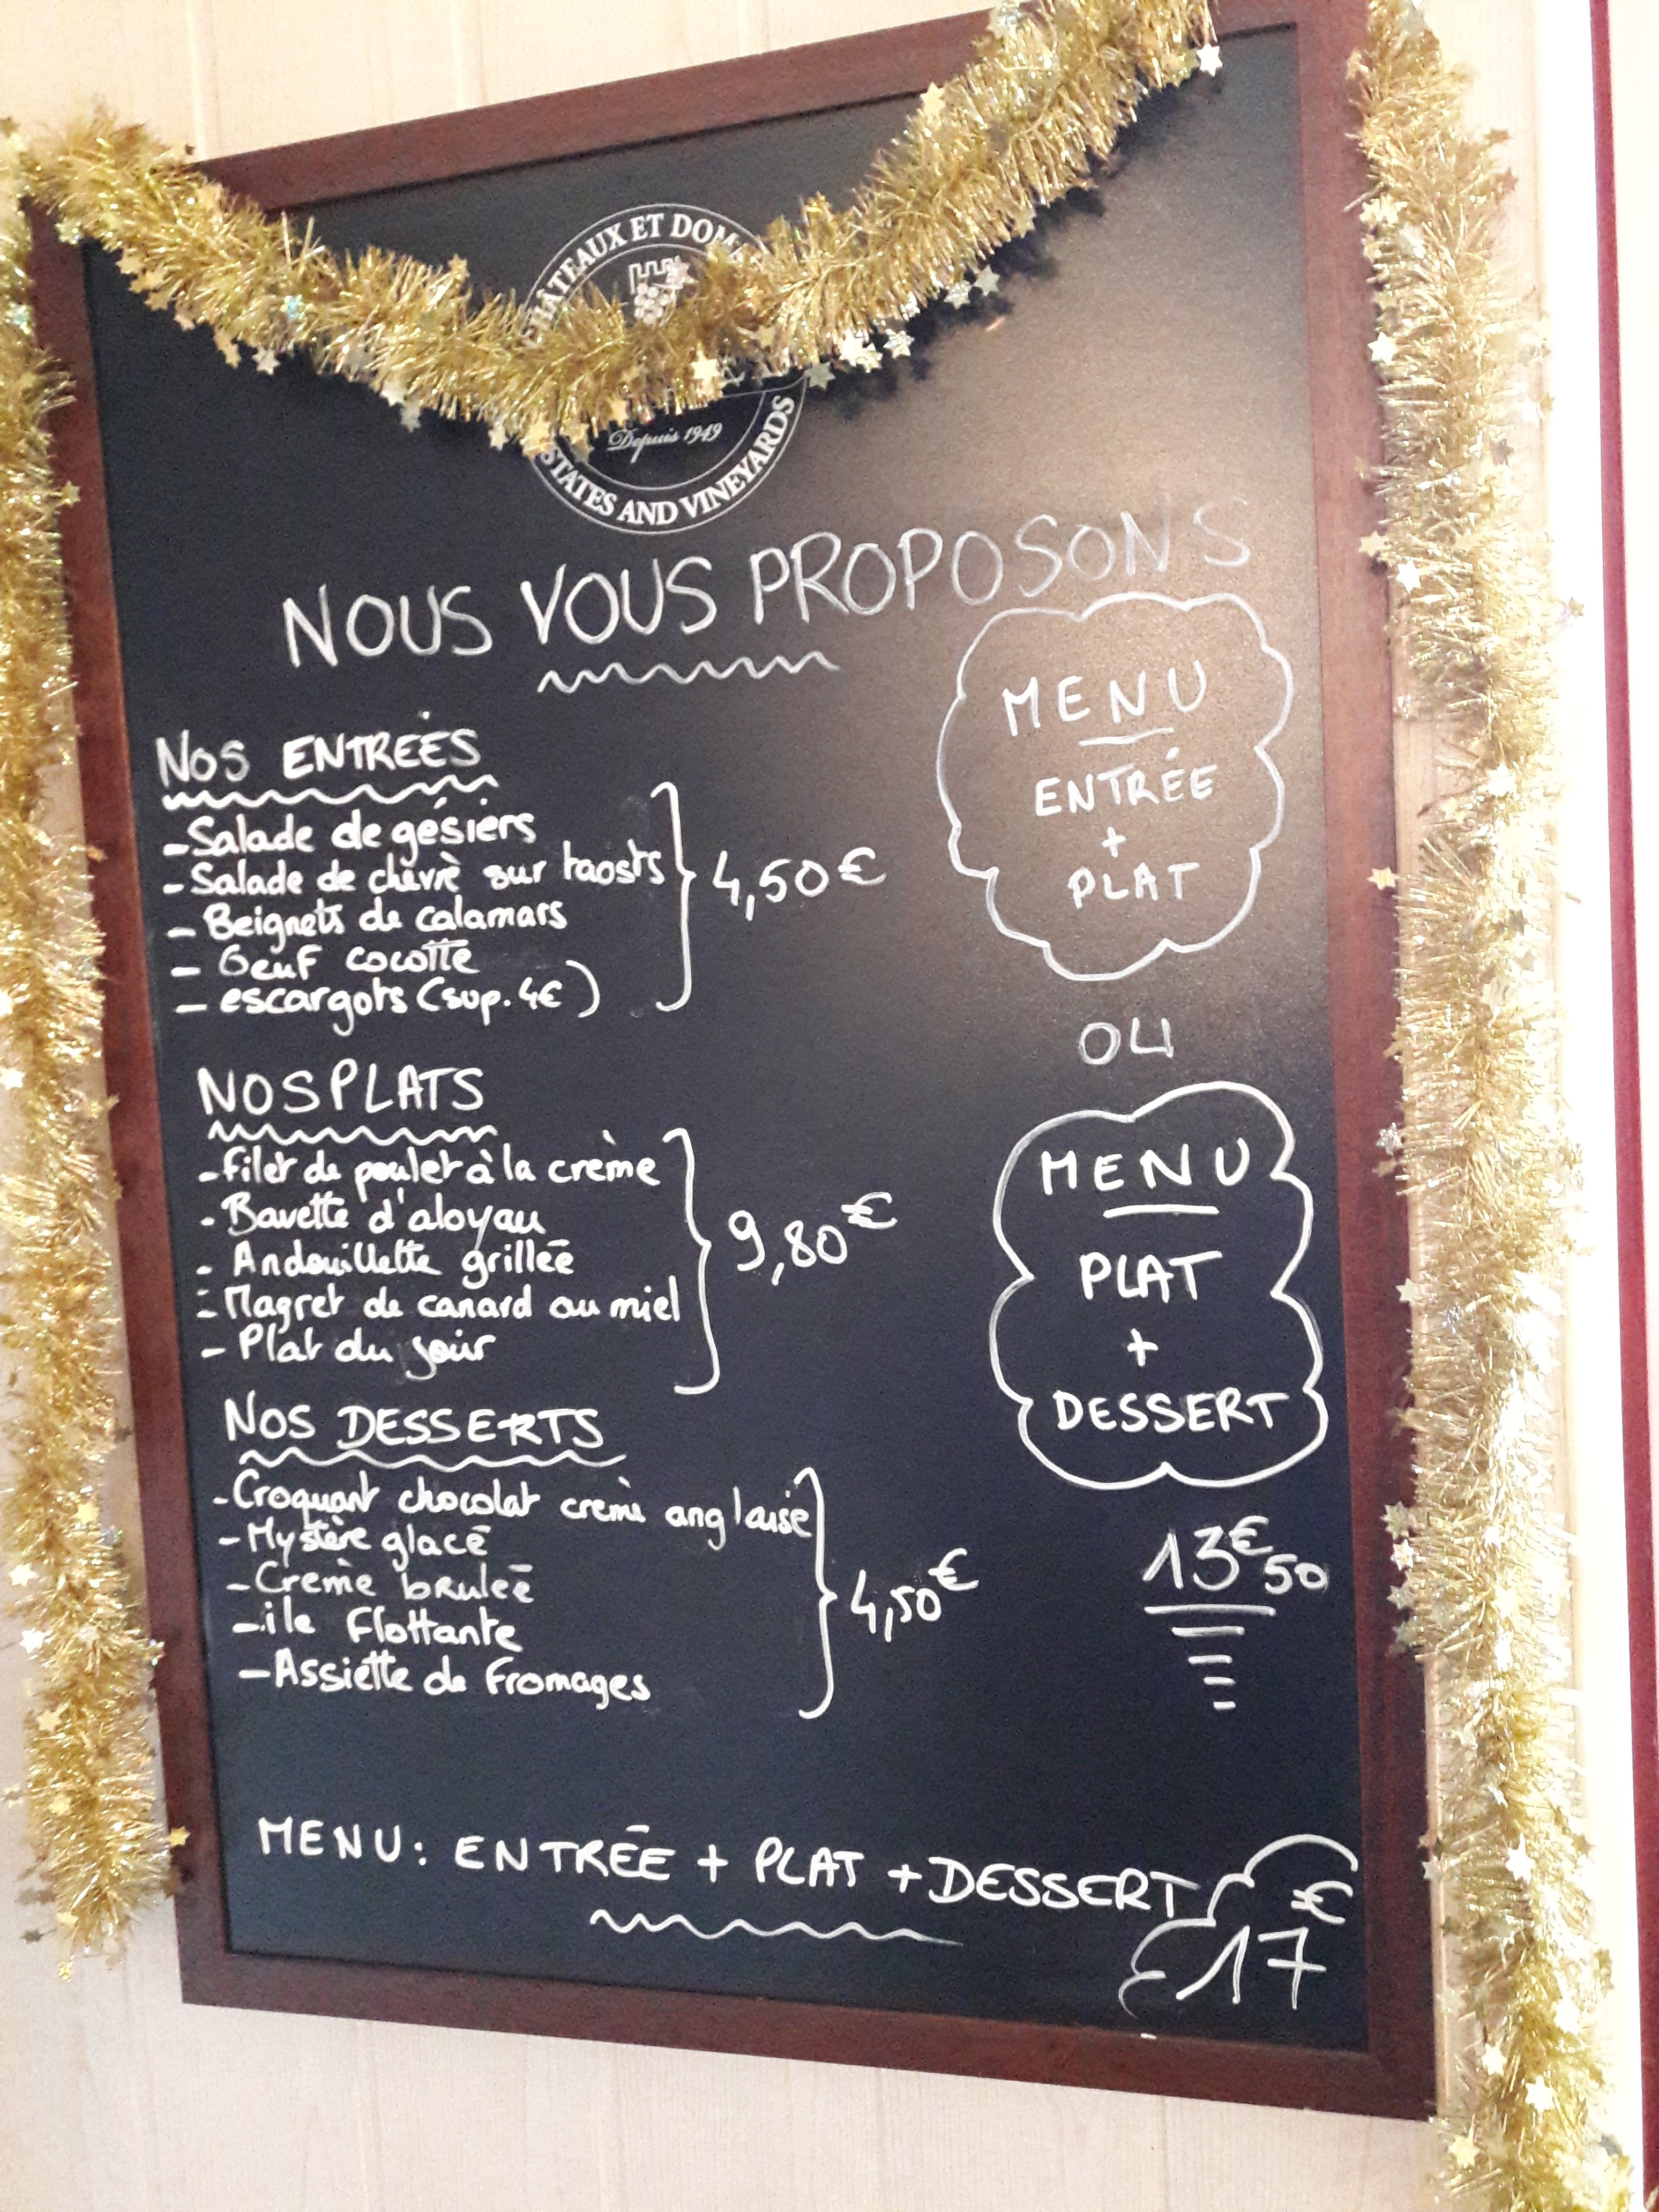 ÂTEAUX ET DOM
Depuis 1949
STATES AND VINEYARDS
NOUS VOUS PROPOSONS
NOS ENTRÉES
- Salade de gésiers
- Salade de chèvre sur taosts
- Beignets de calamars
- Oeuf cocotte
- escargots (sup. 4€)
4,50€
NOS PLATS
- filet de poulet à la crème
- Bavette d'aloyau
- Andouillette grillée
- Magret de canard au miel
- Plat du jour
9,80€
NOS DESSERTS
- Croquant chocolat creme anglaise
- Mystère glacé
- Crème brulée
- ile flottante
- Assiette de fromages
4,50€
MENU
ENTRÉE
+
PLAT
OU
MENU
PLAT
+
DESSERT
13€50
MENU: ENTRÉE + PLAT + DESSERT
€
17